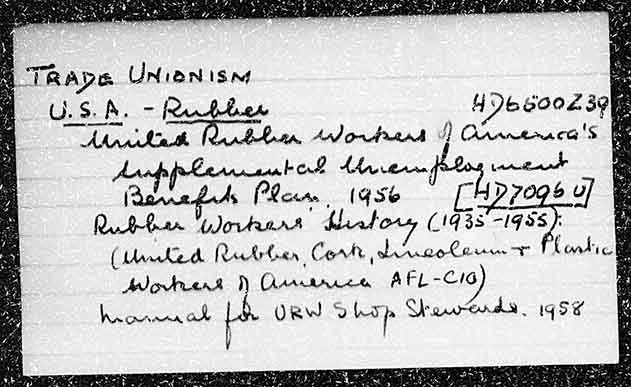 TRADE UNIONISM
U.S.A. - Rubber HD6500Z39
United Rubber Workers of America's
Supplemental Unemployment
Benefits Plan. 1956 [HD7096 U]
Rubber Workers' History (1935-1955):
(United Rubber, Cork, Linoleum + Plastic
Workers of America AFL-CIO)
Manual for URW Shop Stewards. 1958